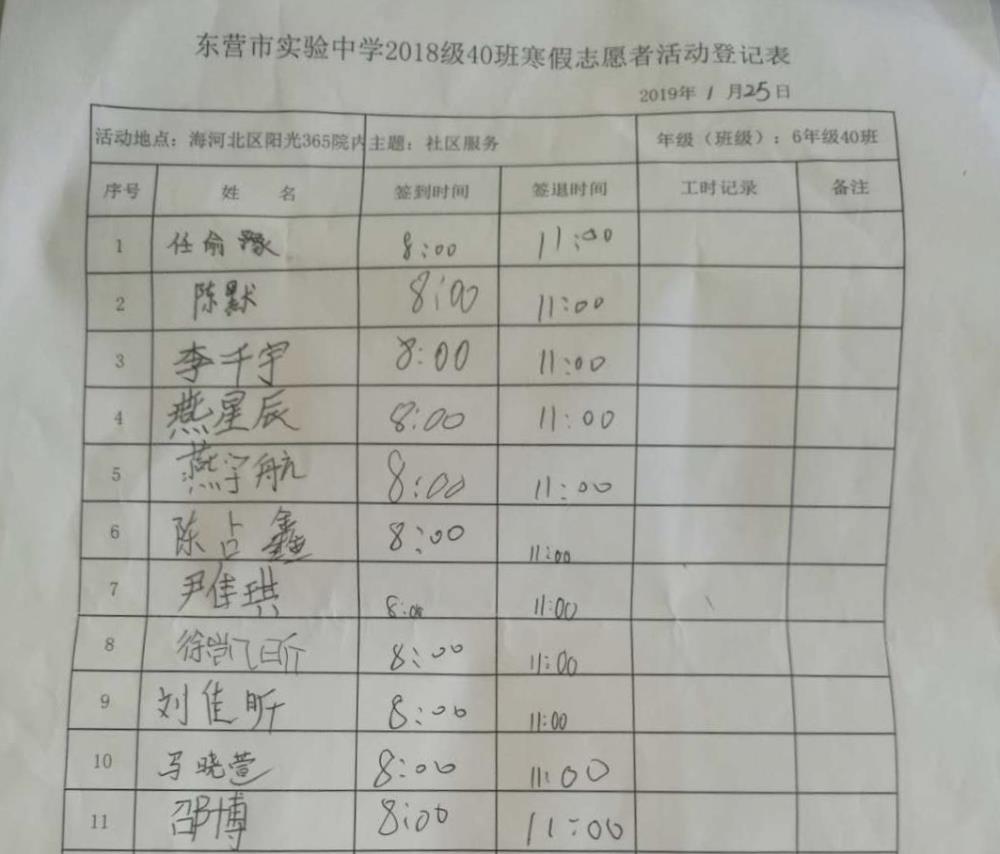 东营市实验中学2018级40班寒假志愿者活动登记表
2019年 1 月25日
活动地点：海河北区阳光365院内 主题：社区服务 年级（班级）：6年级40班
序号 姓 名 签到时间 签退时间 工时记录 备注
1 任俞豫 8:00 11:00
2 陈默 8:00 11:00
3 李千宇 8:00 11:00
4 燕星辰 8:00 11:00
5 燕宇航 8:00 11:00
6 陈占鑫 8:00 11:00
7 尹佳琪 8:00 11:00
8 徐凯昕 8:00 11:00
9 刘佳昕 8:00 11:00
10 马晓萱 8:00 11:00
11 邵博 8:00 11:00